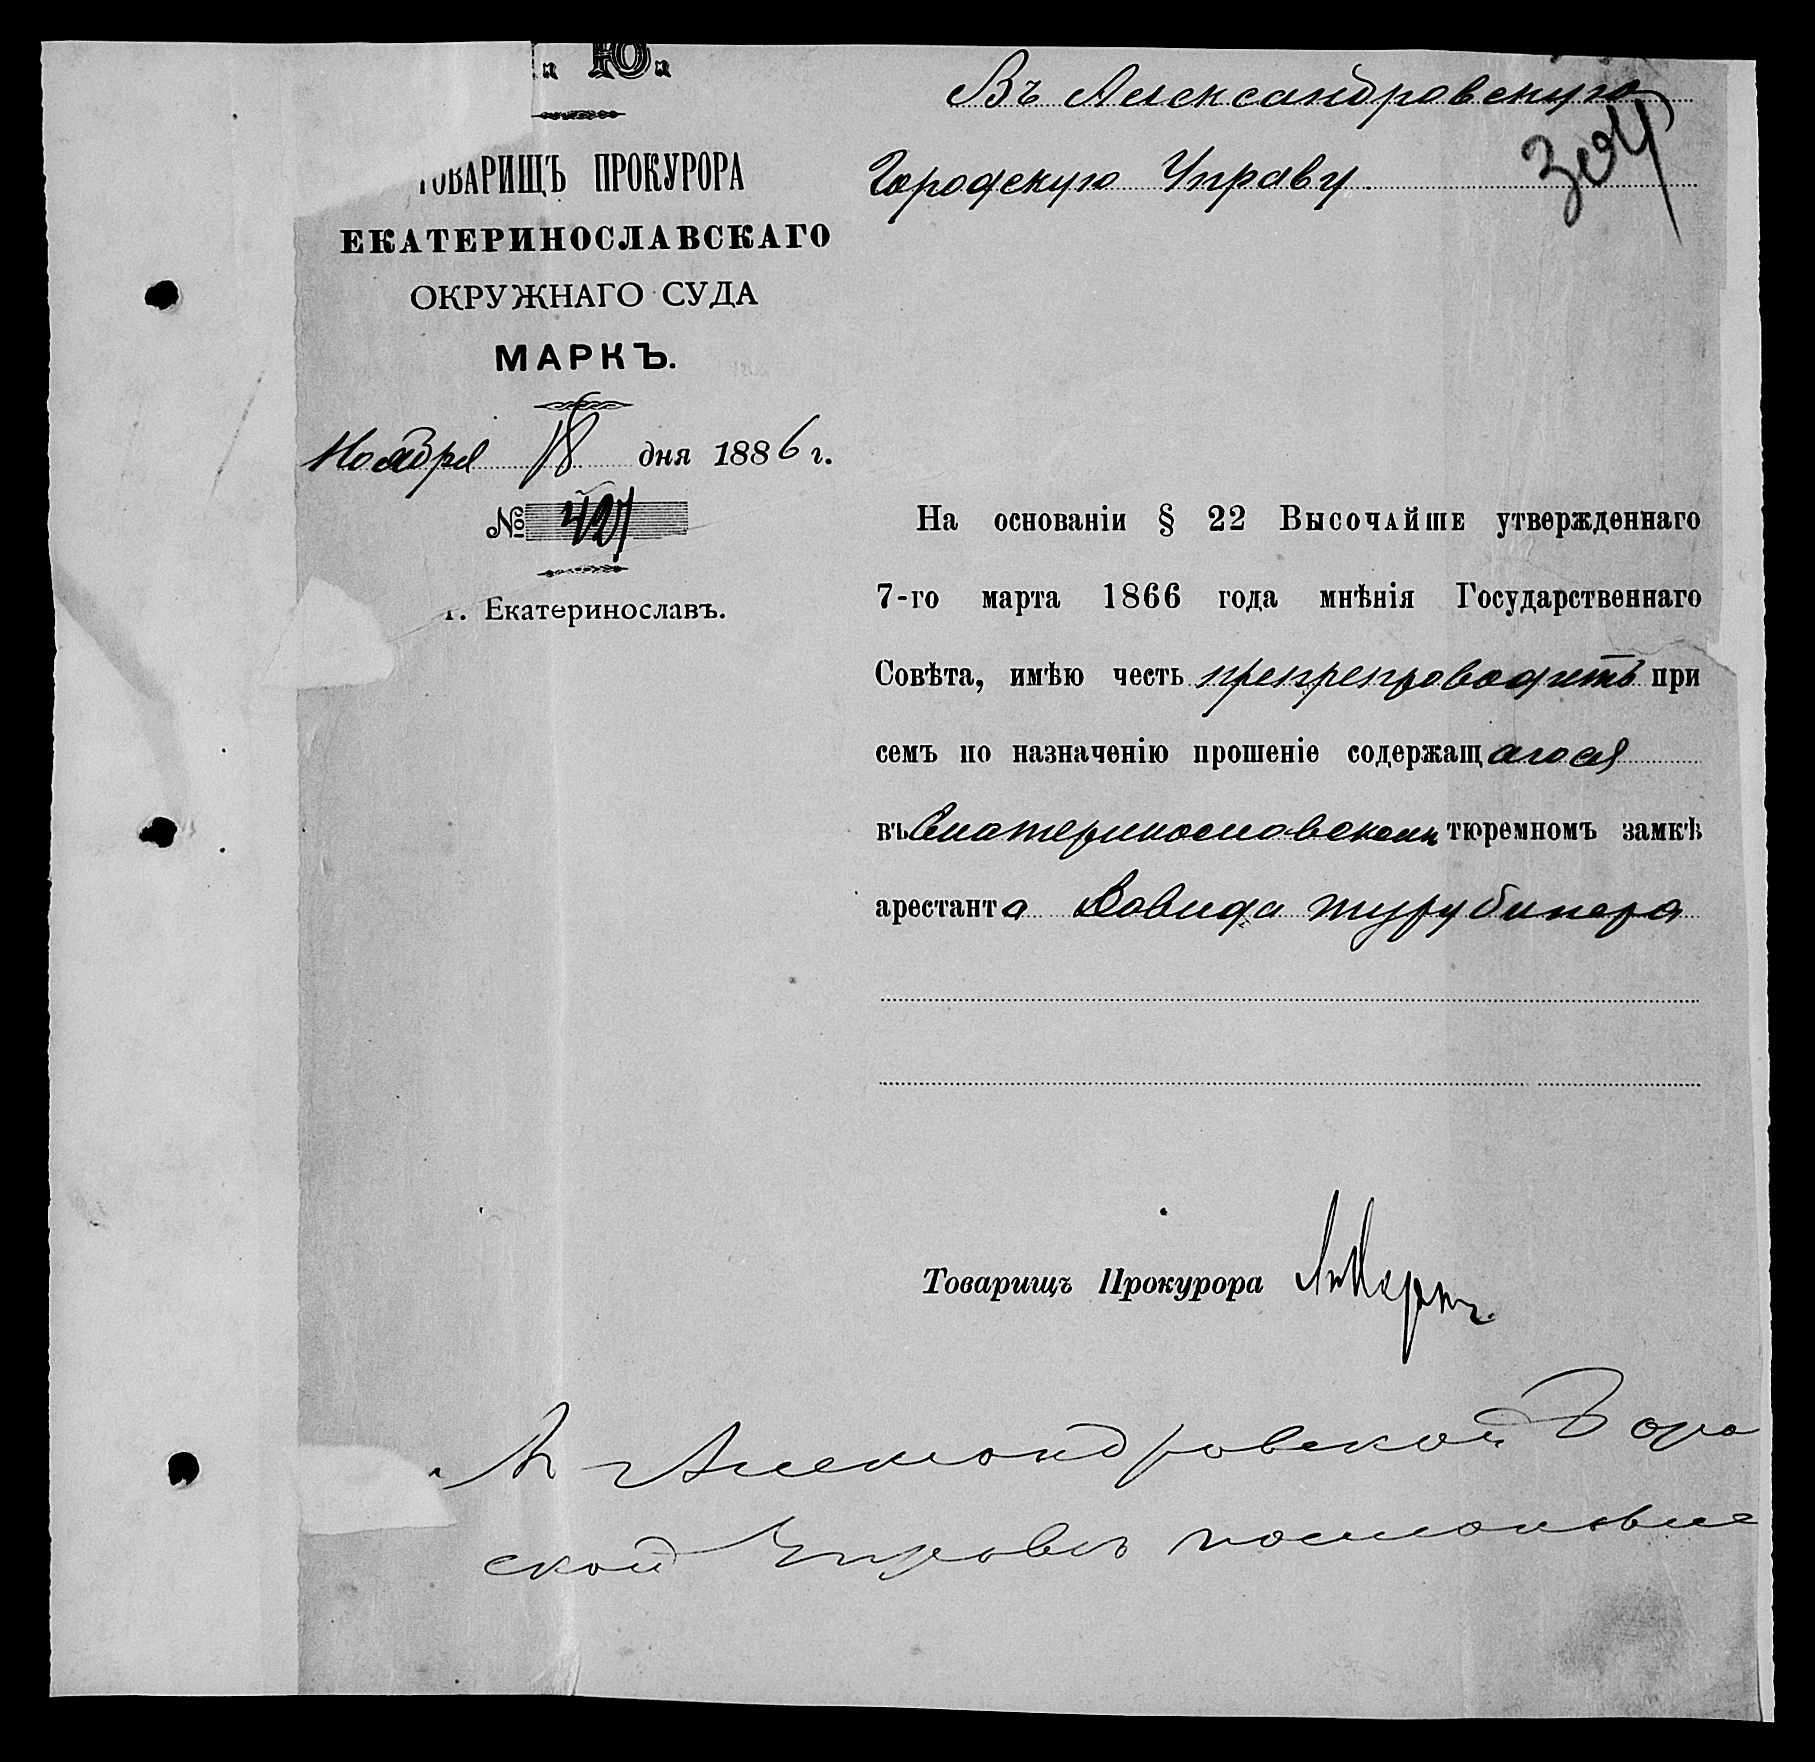 . Ю.
ТОВАРИЩЪ ПРОКУРОРА
ЕКАТЕРИНОСЛАВСКАГО
ОКРУЖНАГО СУДА
МАРКЪ.
Ноября 18 дня 1886 г.
№ 427
г. Екатеринославъ.
Въ Александровскую
Городскую Управу.
На основаніи § 22 Высочайше утвержденнаго
7-го марта 1866 года мнѣнія Государственнаго
Совѣта, имѣю честь препрепроводить при
семъ по назначенію прошеніе содержащагося
въ Екатеринославскомъ тюремномъ замкѣ
арестанта Давида Турубинера
Товарищъ Прокурора
Александровской Горо
ской Управы